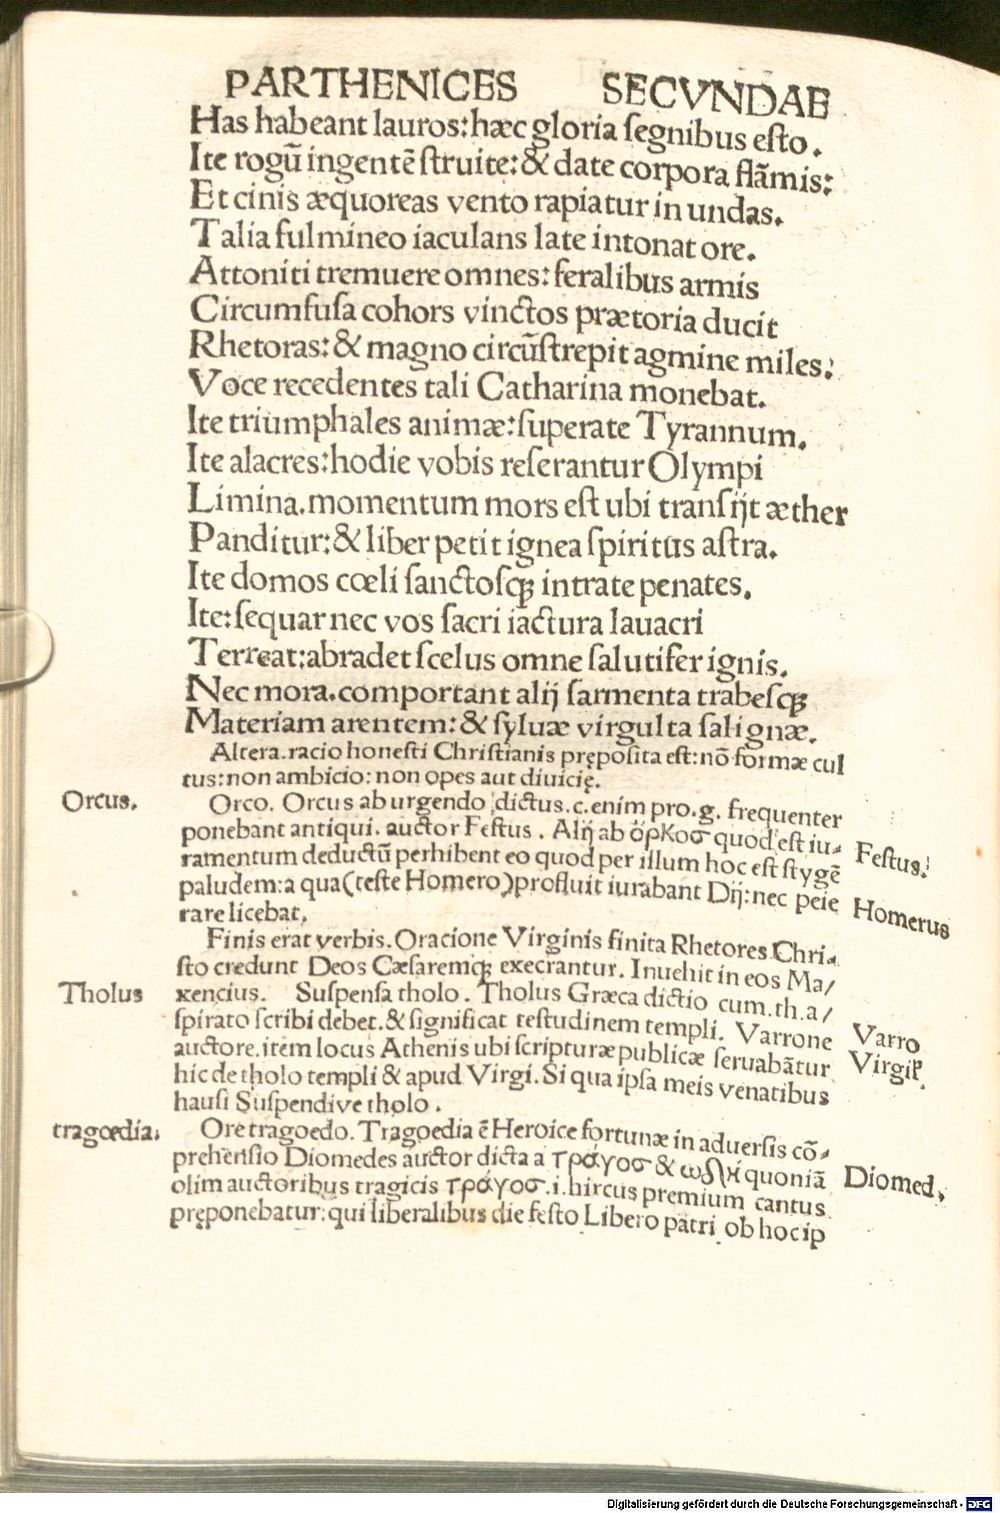 PARTHENICES SECVNDAE
Has habeant lauros: hæc gloria ſegnibus eſto.
Ite rogū ingentē ſtruite: & date corpora flāmis:
Et cinis æquoreas vento rapiatur in undas.
Talia fulmineo iaculans late intonat ore.
Attoniti tremuere omnes: feralibus armis
Circumfuſa cohors vinctos prætoria ducit
Rhetoras: & magno circūſtrepit agmine miles:
Voce recedentes tali Catharina monebat.
Ite triumphales animæ: ſuperate Tyrannum.
Ite alacres: hodie vobis reſerantur Olympi
Limina. momentum mors eſt ubi tranſijt æther
Panditur: & liber petit ignea ſpiritus aſtra.
Ite domos cœli ſanctoſqꝫ intrate penates.
Ite: ſequar nec vos ſacri iactura lauacri
Terreat: abradet ſcelus omne ſalutifer ignis.
Nec mora. comportant alij ſarmenta trabeſqꝫ
Materiam arentem: & ſyluæ virgulta ſalignæ.
Altera. racio honeſti Chriſtianis prępoſita eſt: nō formæ cul
tus: non ambicio: non opes aut diuicię.
Orcus.
Orco. Orcus ab urgendo dictus. c. enim pro. g. frequenter
ponebant antiqui. auctor Feſtus. Alij ab ὅρκοσ quod eſt iu-
Feſtus.
ramentum deductū perhibent eo quod per illum hoc eſt ſtygē
paludem: a qua (teſte Homero) profluit iurabant Dij: nec peie
Homerus
rare licebat.
Finis erat verbis. Oracione Virginis finita Rhetores Chri-
ſto credunt Deos Cæſaremqꝫ execrantur. Inuehit in eos Ma/
Tholus
xencius. Suſpenſa tholo. Tholus Græca dictio cum. th. a/
ſpirato ſcribi debet. & ſignificat teſtudinem templi. Varrone
Varro
auctore. item locus Athenis ubi ſcripturæ publicæ ſeruabātur
Virgiꝉ.
hic de tholo templi & apud Virgi. Si qua ipſa meis venatibus
hauſi Suſpendive tholo.
tragœdia:
Ore tragoedo. Tragoedia ē Heroice fortunæ in aduerſis cō-
prehenſio Diomedes auctor dicta a τράγοσ & ωδὴ quoniā
Diomed.
olim auctoribus tragicis τράγοσ. i. hircus premium cantus
pręponebatur: qui liberalibus die feſto Libero patri ob hoc ip
Digitalisierung gefördert durch die Deutsche Forschungsgemeinschaft - DFG